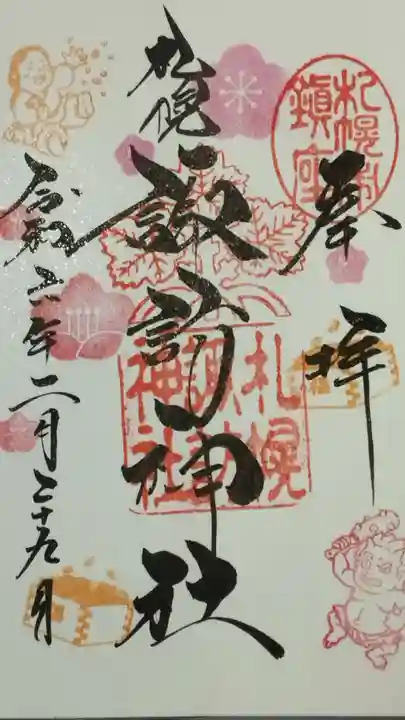 奉拝
札幌市
鎮座
札幌
諏訪神社
札幌
諏訪
神社
令和六年二月二十九日